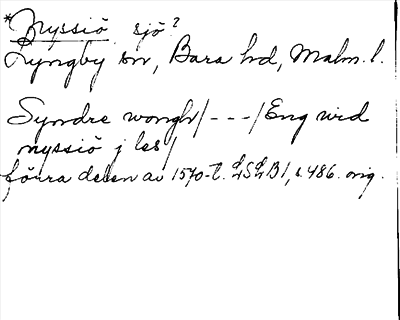 *Nyssiö sjö?
Lyngby sn, Bara hd, Malm. l.
Syndre wongh/---/Eng wid
nyssiö j les/
förra delen av 1570-t. LSLB1, s. 486. orig.